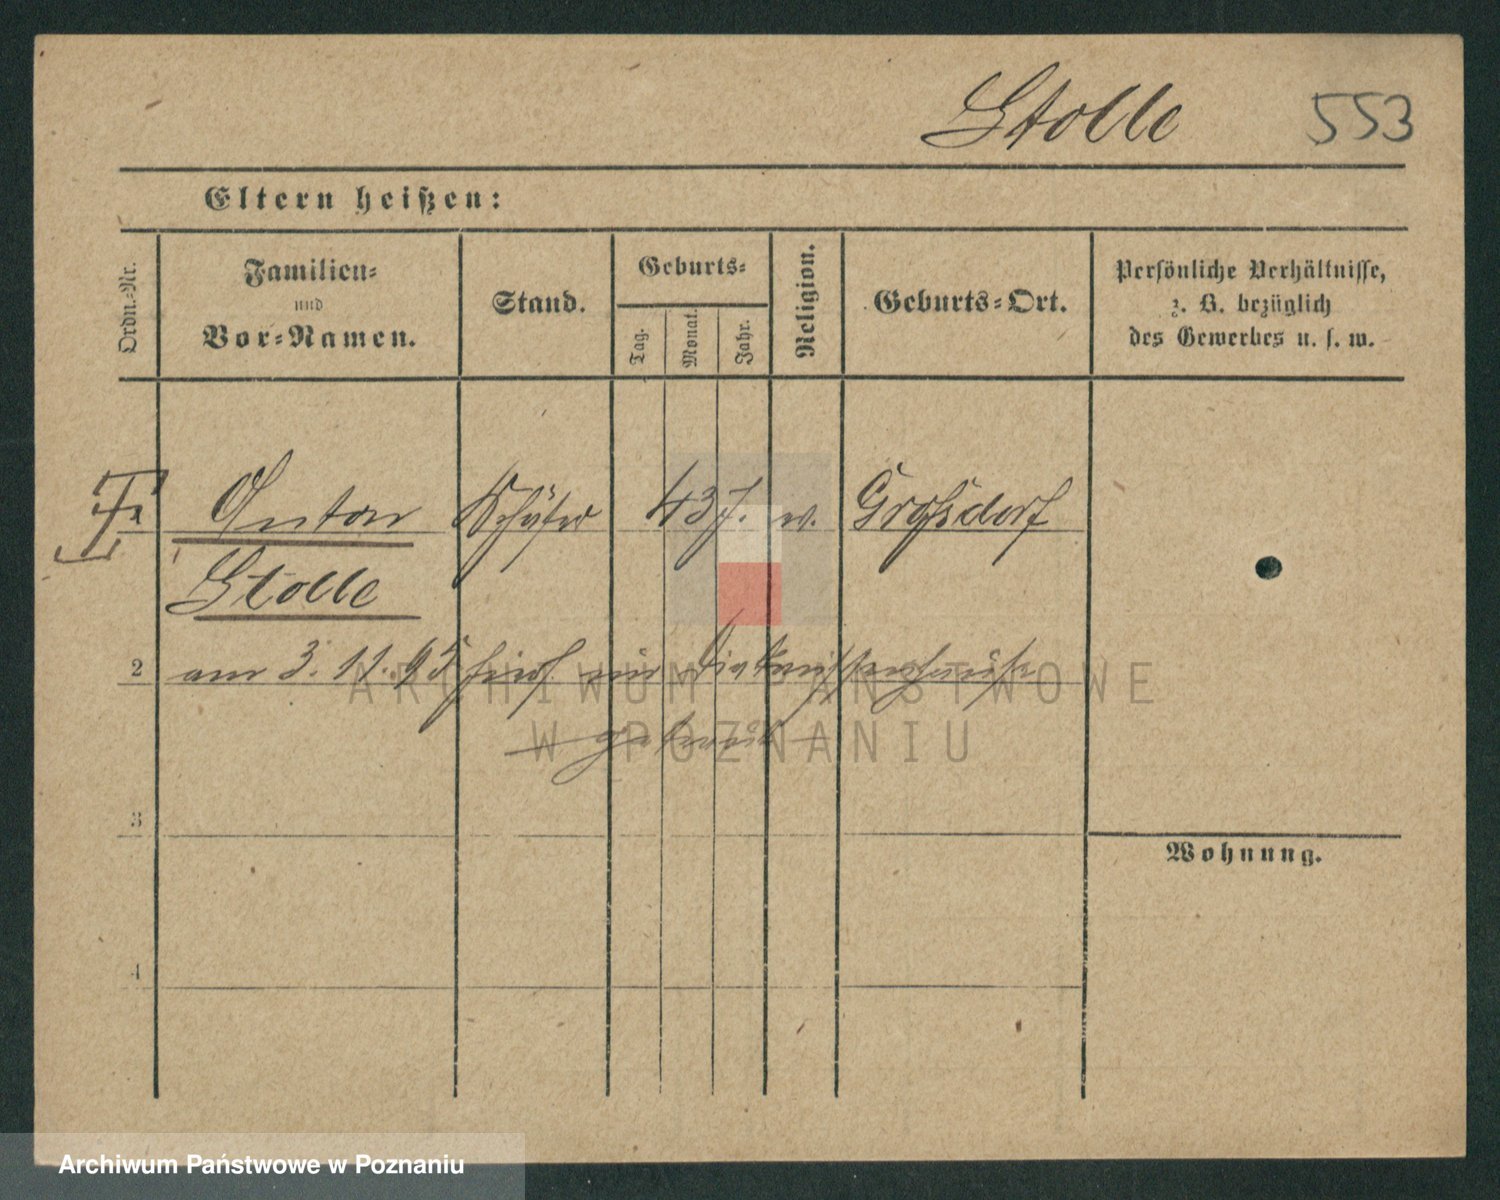 Stolle 553
Eltern heißen:
Ordn.-Nr.
Familien-
und
Vor-Namen.
Stand.
Geburts-
Tag.
Monat.
Jahr.
Religion.
Geburts-Ort.
Persönliche Verhältnisse,
z. B. bezüglich
des Gewerbes u. s. w.
Anton Schäfer 43 J. Grossdorf
Stolle
2 am 3. 11. 95 hier im Diakonissenhause
3
Wohnung.
4
ARCHIWUM PAŃSTWOWE
W POZNANIU
Archiwum Państwowe w Poznaniu